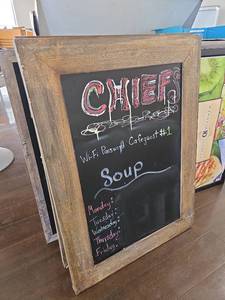 CHIEFS
Wi-Fi Password Cafeguest$1
Soup
Monday:
Tuesday:
Wednesday:
Thursday:
Friday: